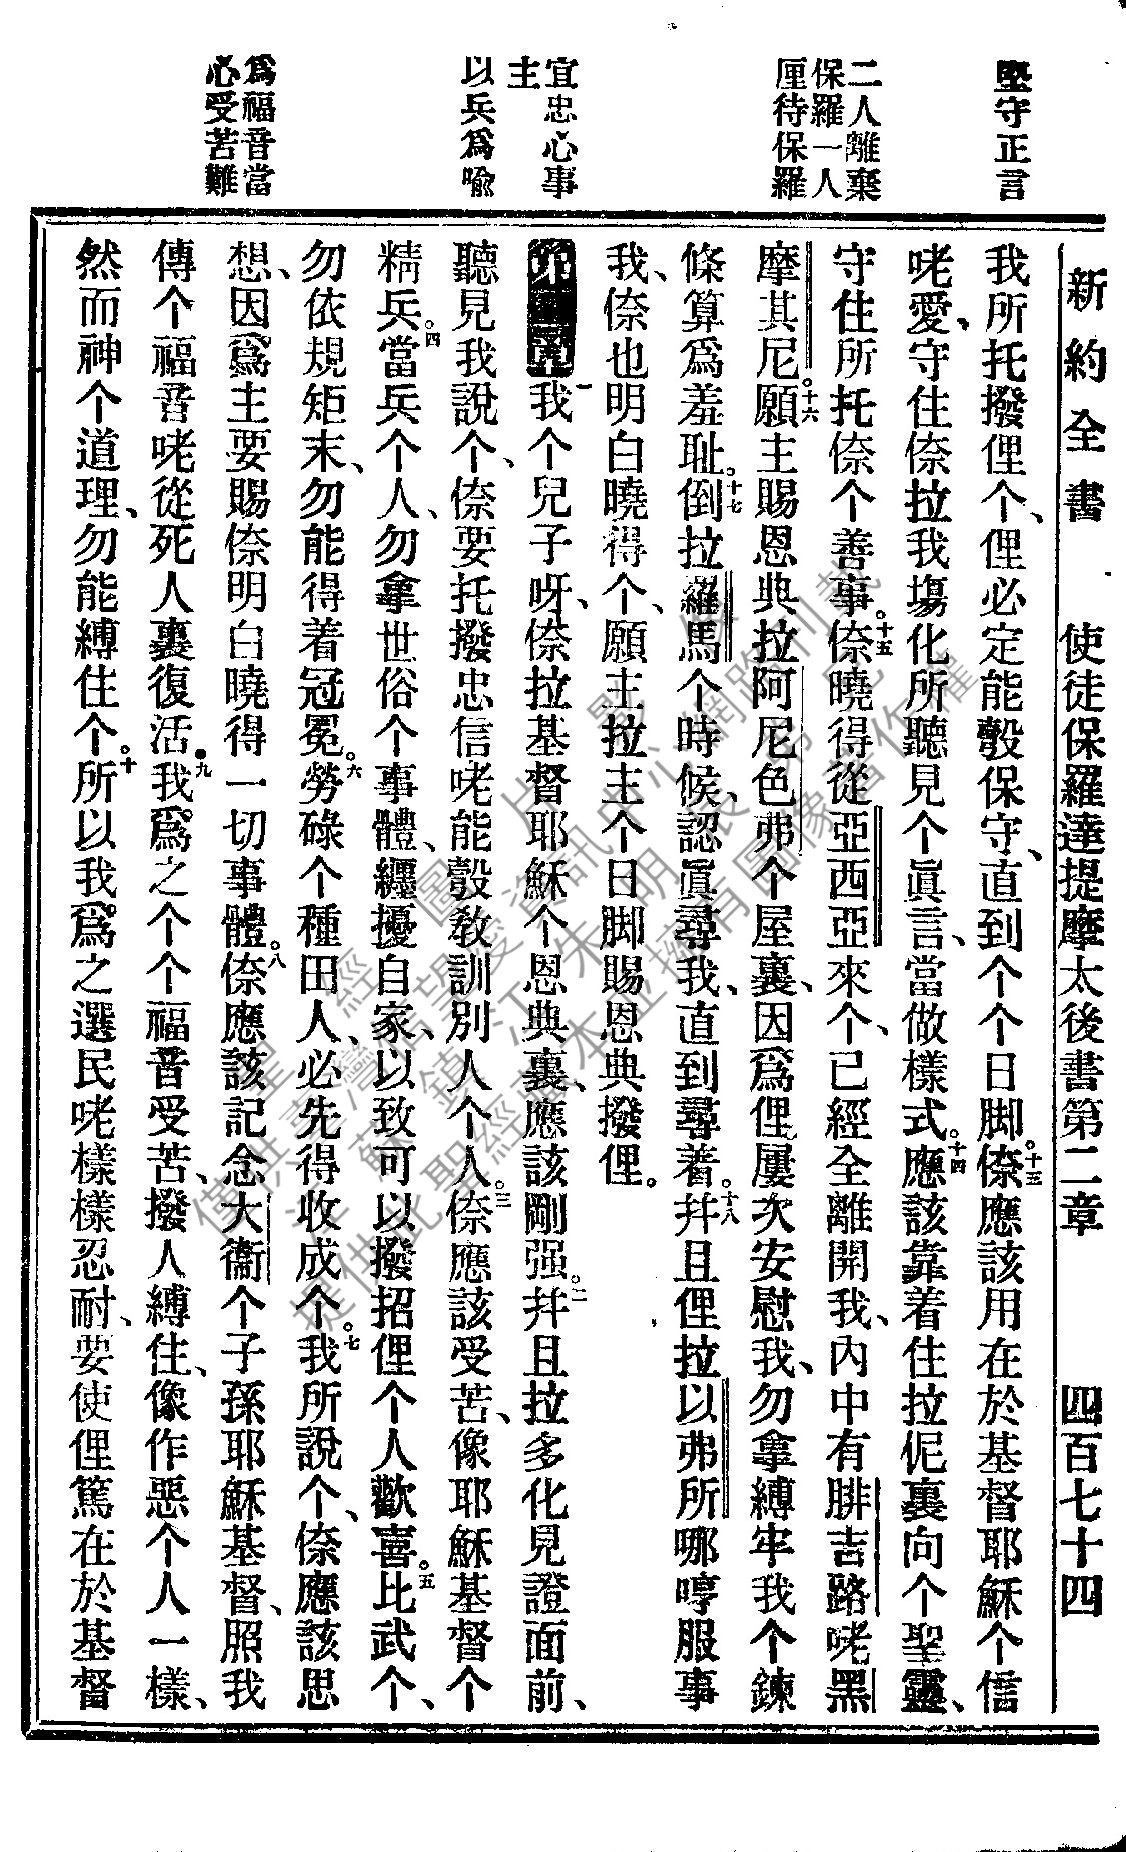 新約全書 使徒保羅達提摩太後書第二章 四百七十四
堅守正言
二人離棄
保羅一人
厘待保羅
宜忠心事
主
以兵爲喩
爲福音當
心受苦難
我所托撥俚个、俚必定能彀保守、直到个个日脚。十三倷應該用在於基督耶穌个信
咾愛、守住倷拉我塲化所聽見个眞言、當做樣式。十四應該靠着住拉伲裏向个聖靈、
守住所托倷个善事。十五倷曉得從亞西亞來个、已經全離開我、內中有腓吉路咾黑
摩其尼。十六願主賜恩典拉阿尼色弗个屋裏、因爲俚屢次安慰我、勿拿縛牢我个鍊
條算爲羞耻。十七倒拉羅馬个時候、認眞尋我、直到尋着。十八幷且俚拉以弗所哪哼服事
我、倷也明白曉得个、願主拉主个日脚賜恩典撥俚。
第二章 一我个兒子呀、倷拉基督耶穌个恩典裏、應該剛强。二幷且拉多化見證面前、
聽見我說个、倷要托撥忠信咾能彀敎訓別人个人。三倷應該受苦、像耶穌基督个
精兵。四當兵个人、勿拿世俗个事體、纏擾自家、以致可以撥招俚个人歡喜。五比武个、
勿依規矩末、勿能得着冠冕。六勞碌个種田人、必先得收成个。七我所說个、倷應該思
想、因爲主要賜倷明白曉得一切事體。八倷應該記念大衞个子孫耶穌基督、照我
傳个福音咾從死人裏復活。九我爲之个个福音受苦、撥人縛住、像作惡个人一樣、
然而神个道理、勿能縛住个。十所以我爲之選民咾樣樣忍耐、要使俚篤在於基督